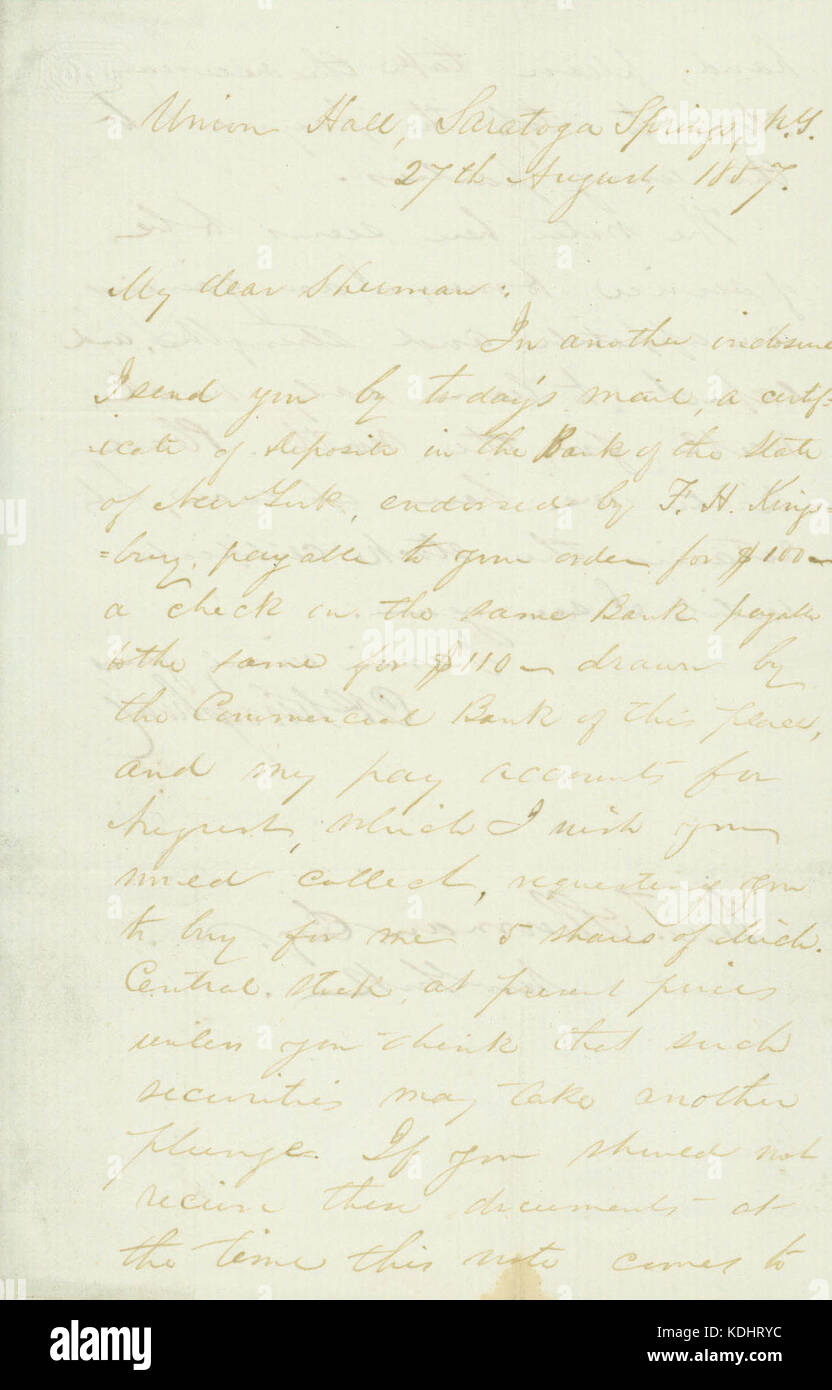 Union Hall, Saratoga Springs, N.Y.
27th August, 1857.
My dear Sherman:
In another inclosure
I send you by to-day's mail, a certif-
icate of deposite in the Bank of the State
of New York, endorsed by F. H. Kings=
=bury, payable to your order for $100—
a check on the same Bank payable
to the same for $110— drawn by
the Commercial Bank of this place,
and my pay accounts for
August, which I wish you
would collect, requesting you
to buy for me 5 shares of Mich.
Central stock, at present prices
unless you think that such
securities may take another
plunge. If you should not
receive these documents at
the time this note comes to
alamy
alamy
Image ID: KDHRYC
www.alamy.com